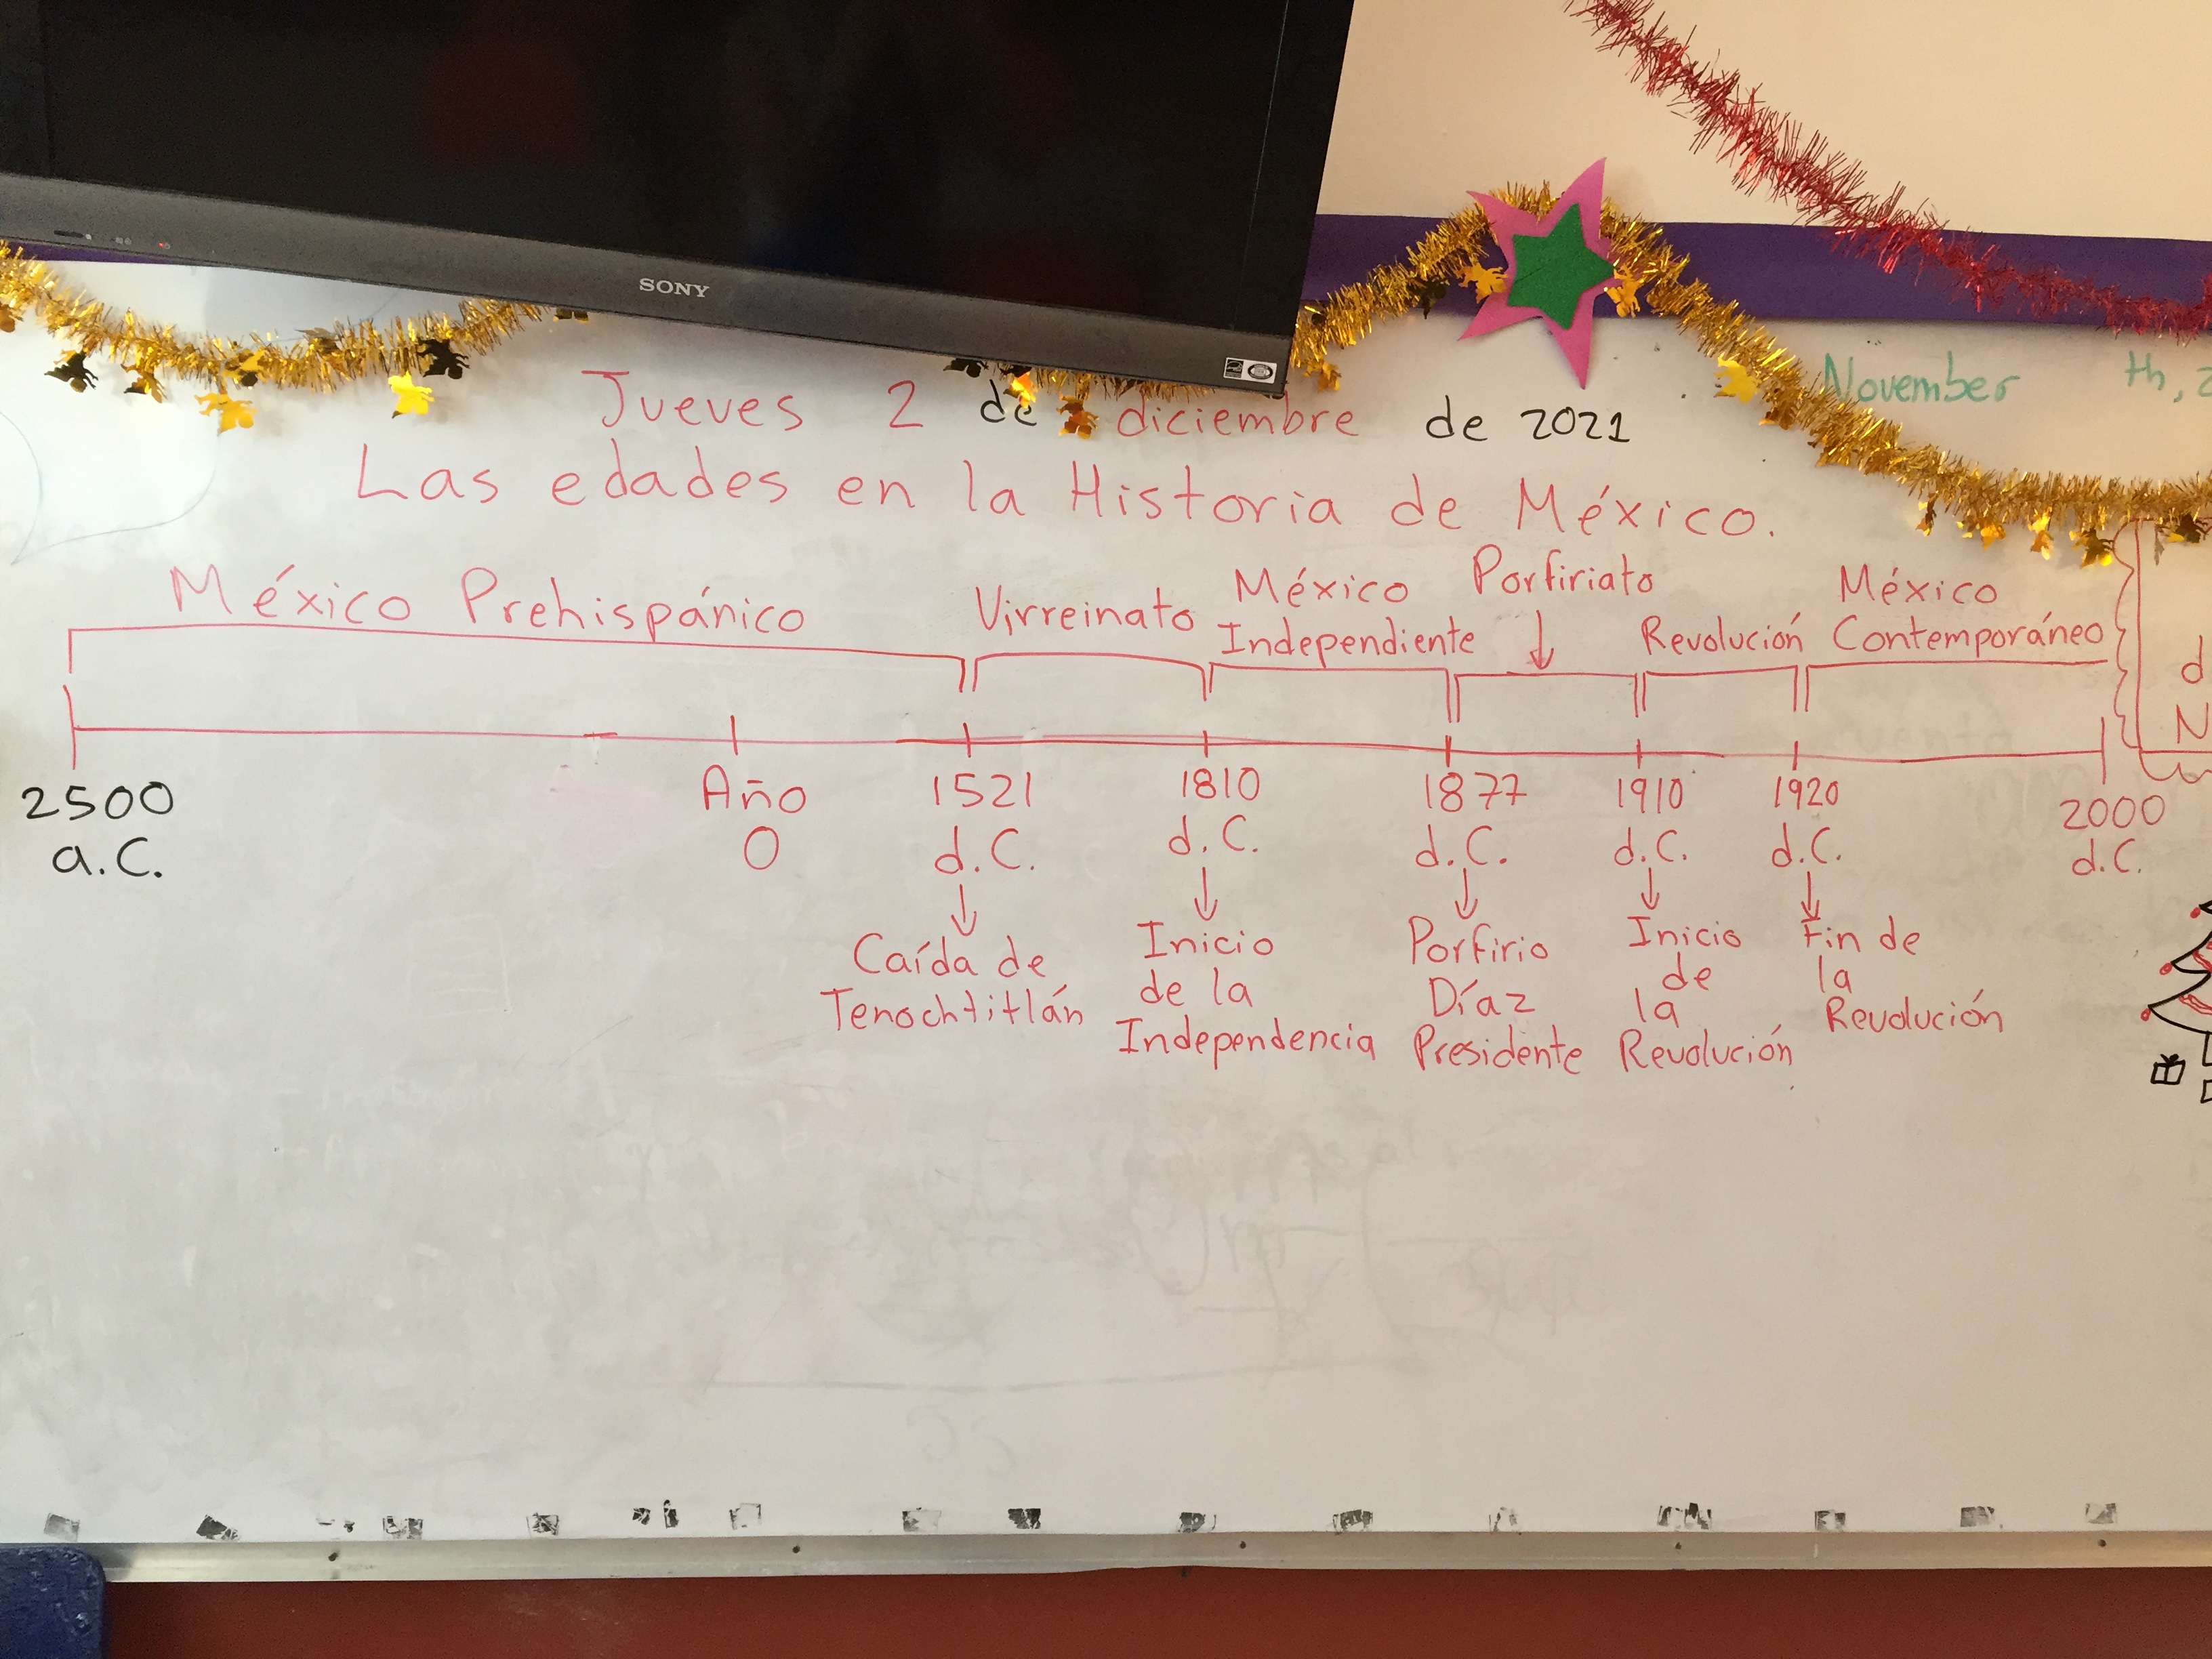 SONY
Jueves 2 de diciembre de 2021
November th, 2
Las edades en la Historia de México.
México Prehispánico
Virreinato
México
Independiente
Porfiriato
Revolución
México
Contemporáneo
d
N
2500
a.C.
Año
0
1521
d.C.
Caída de
Tenochtitlán
1810
d.C.
Inicio
de la
Independencia
1877
d.C.
Porfirio
Díaz
Presidente
1910
d.C.
Inicio
de
la
Revolución
1920
d.C.
Fin de
la
Revolución
2000
d.C.